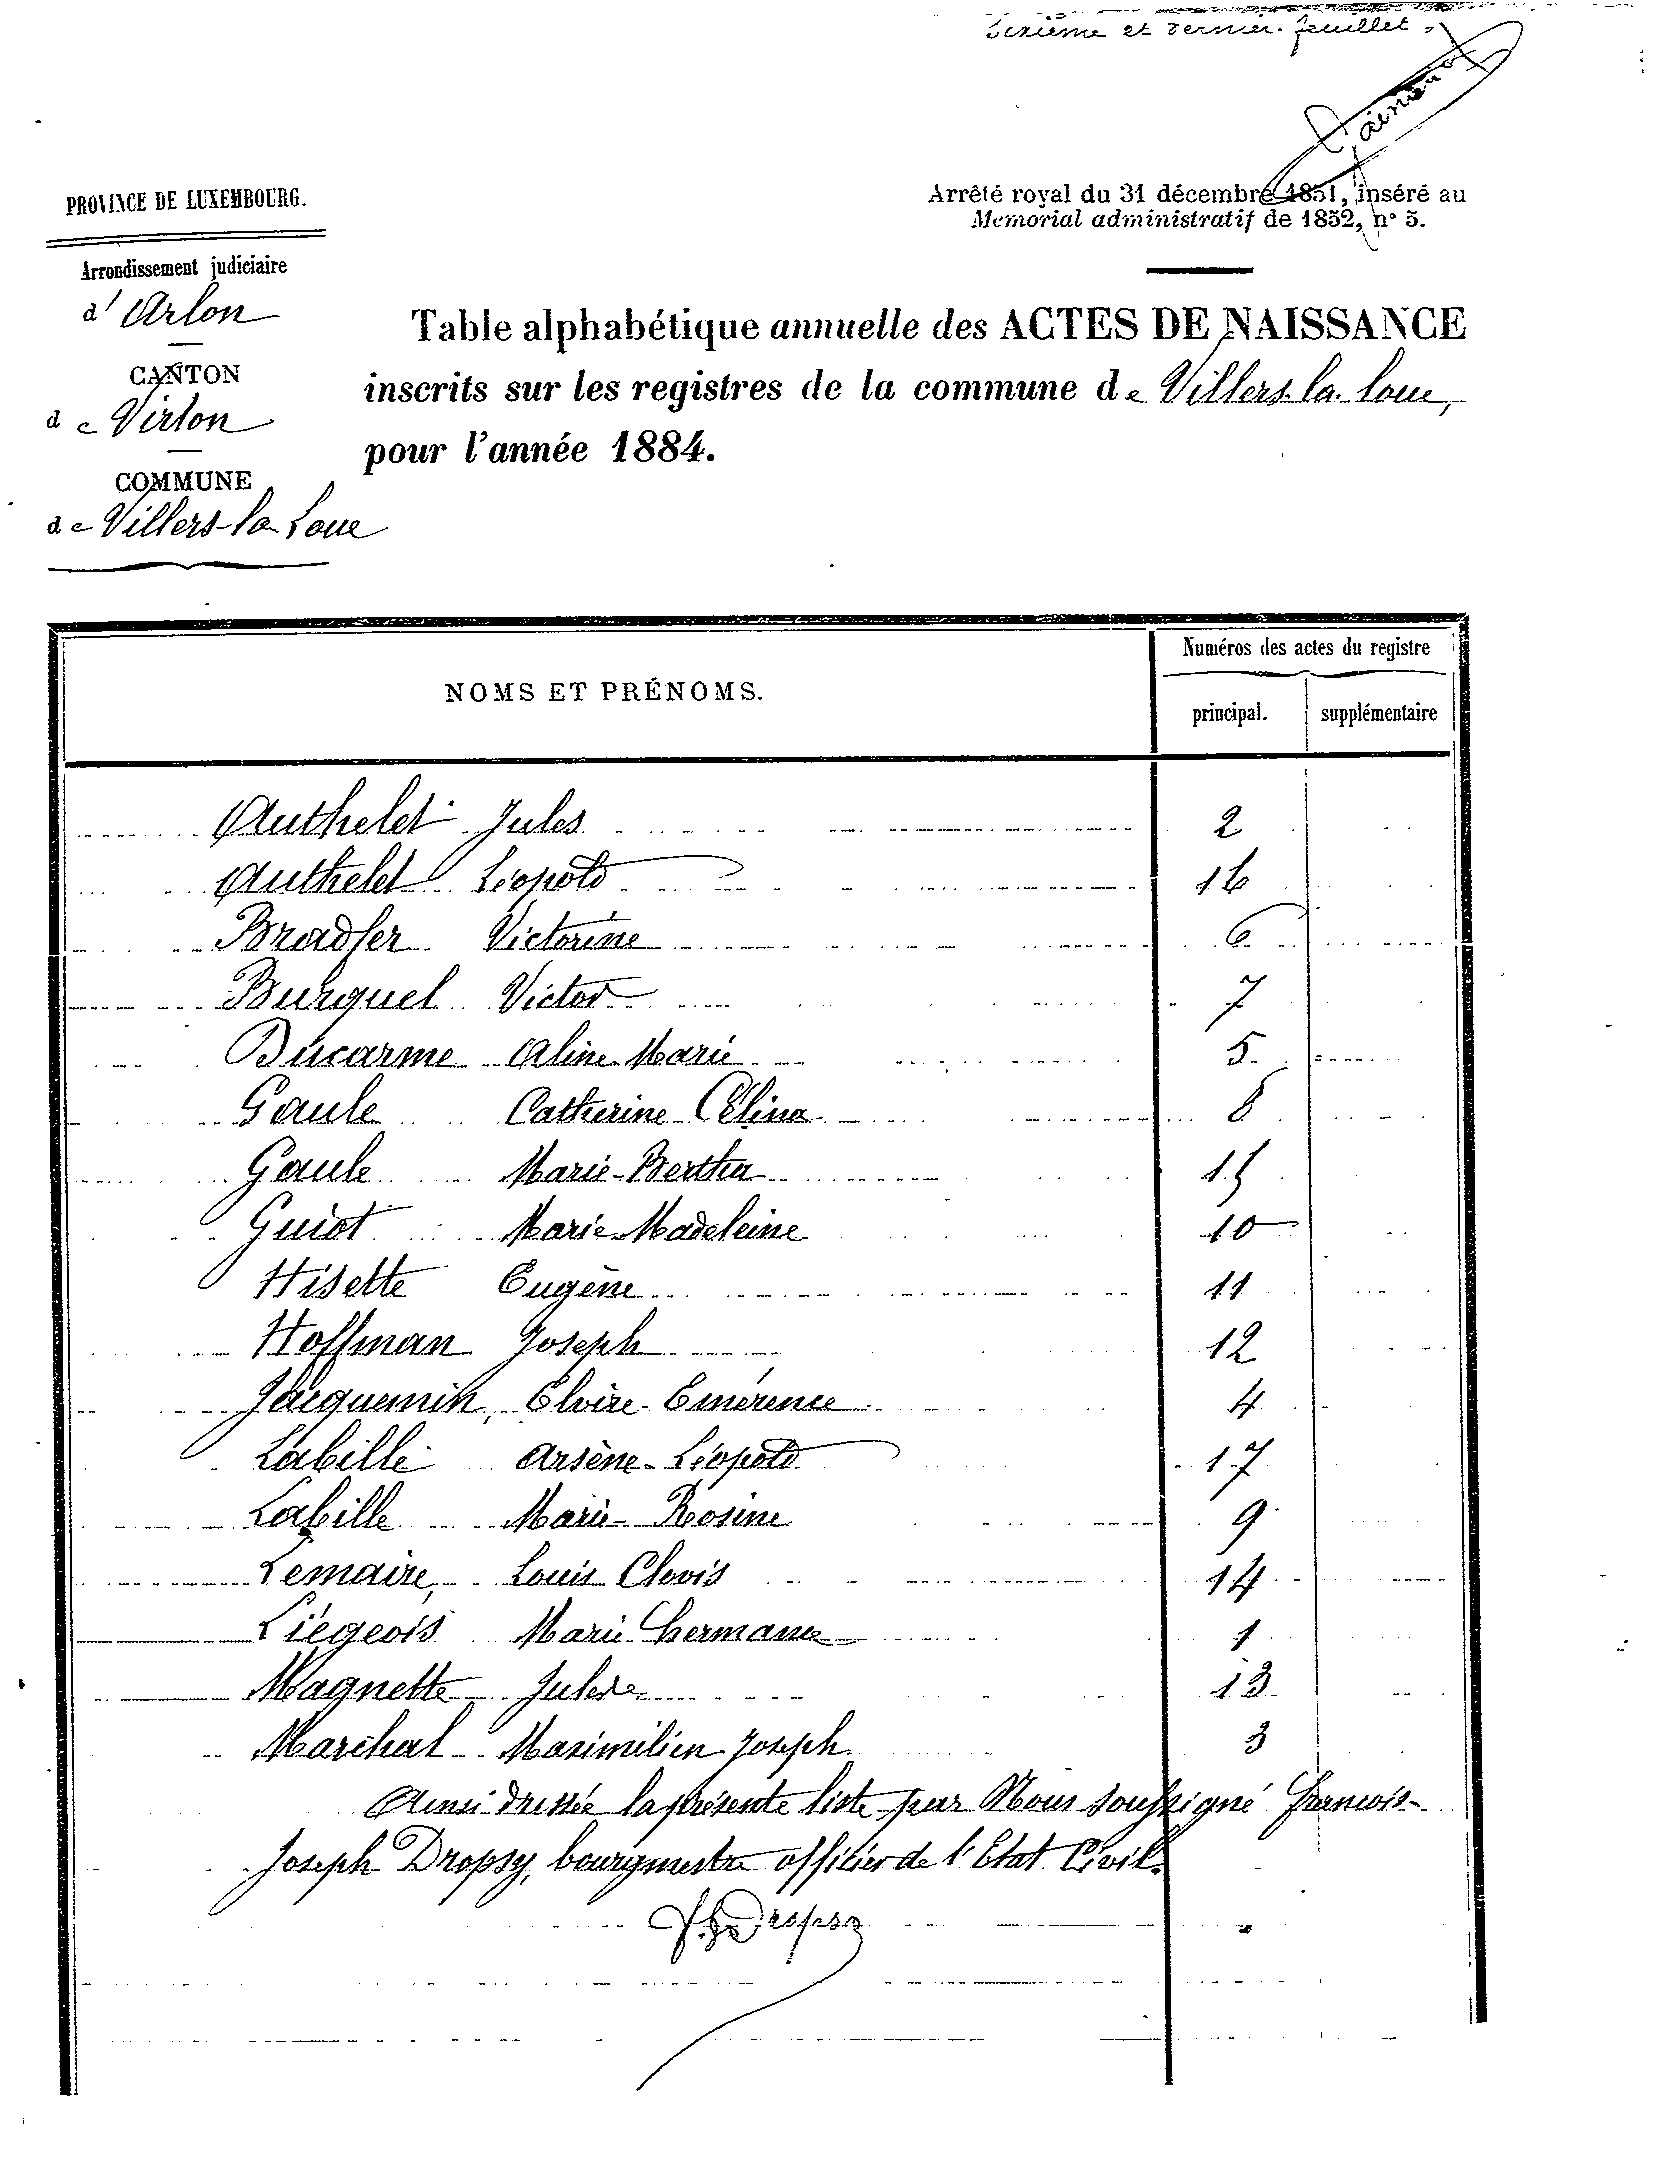 Sixième et dernier feuillet.
PROVINCE DE LUXEMBOURG.
Arrêté royal du 31 décembre 1851, inséré au
Memorial administratif de 1852, n° 5.
Arrondissement judiciaire
d'Arlon
CANTON
de Virton
COMMUNE
de Villers-la-Loue
Table alphabétique annuelle des ACTES DE NAISSANCE
inscrits sur les registres de la commune de Villers-la-Loue,
pour l'année 1884.
NOMS ET PRÉNOMS.
Numéros des actes du registre
principal. supplémentaire
Authelet Jules 2
Authelet Léopold 16
Bradfer Victorine 6
Burquel Victor 7
Ducarme Aline Marie 5
Gaule Catherine Célina 8
Gaule Marie-Bertha 15
Guiot Marie Madeleine 10
Hisette Eugène 11
Hoffman Joseph 12
Jacquemin, Elvire-Emérence 4
Labille Arsène-Léopold 17
Labille Marie-Rosine 9
Lemaire, Louis Clovis 14
Liégeois Marie 1
Magnette 13
Marchal Maximilien Joseph 3
Ainsi dressée la présente liste par Nous soussigné François-
Joseph Dropsy, bourgmestre officier de l'Etat Civil.
Dropsy